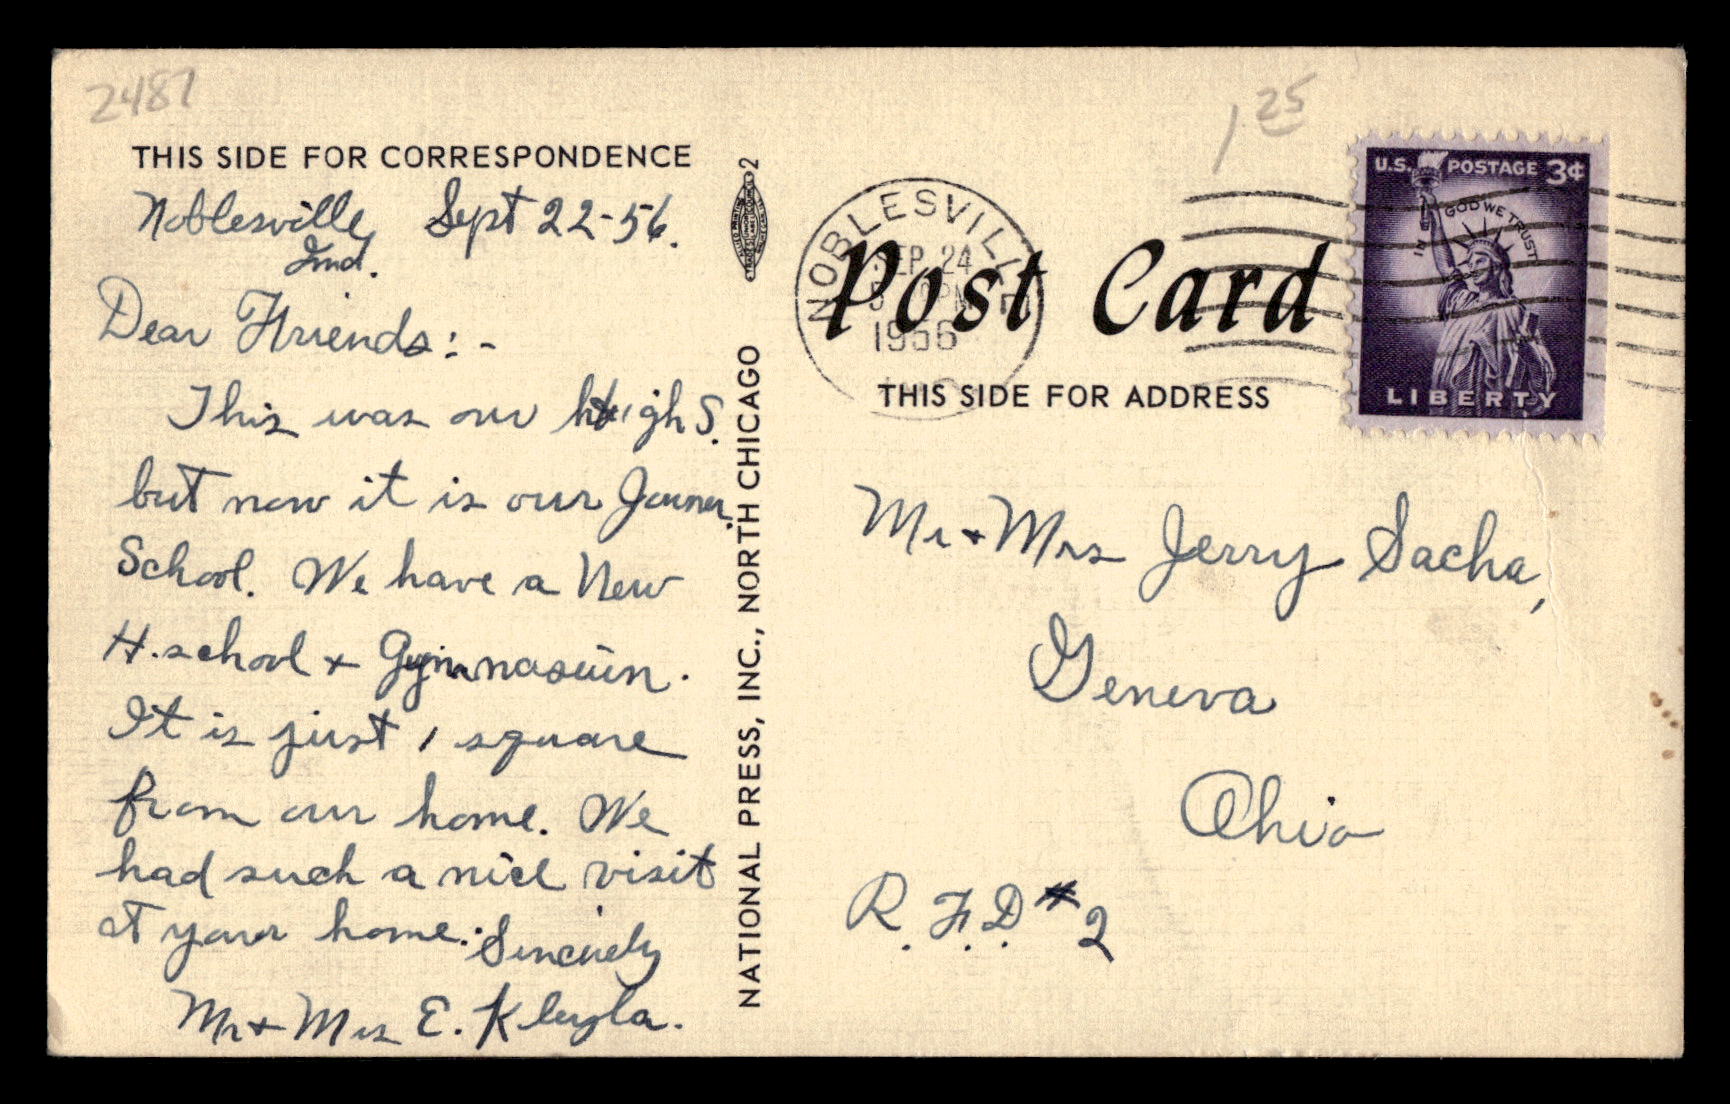 2487
1 25
THIS SIDE FOR CORRESPONDENCE
Noblesville, Sept 22-56.
Ind.
Dear Friends:-
This was our high S.
but now it is our Jouner
School. We have a New
H. school + Gymnasium.
It is just 1 square
from our home. We
had such a nice visit
at your home. Sincerely
Mr + Mrs E. Kleyla.
2
NATIONAL PRESS, INC., NORTH CHICAGO
NOBLESVILLE
SEP 24
PM
1956
Post Card
THIS SIDE FOR ADDRESS
U.S. POSTAGE 3¢
IN GOD WE TRUST
LIBERTY
Mr + Mrs Jerry Sacha,
Geneva
Ohio
R.F.D. #2